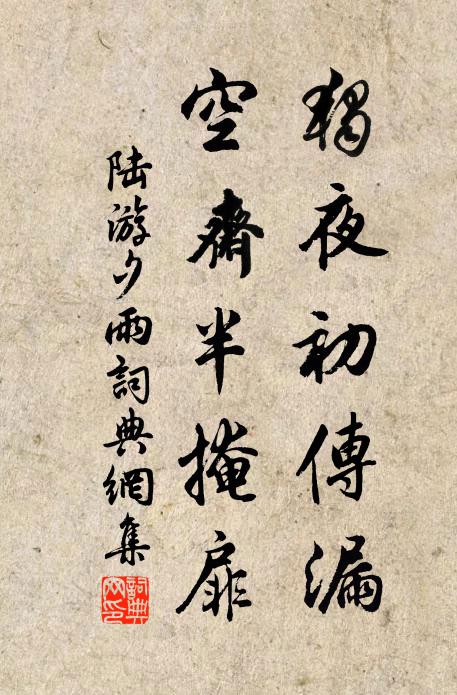 獨夜初傳漏
空齋半掩扉
陸游夕雨詞典網集
詞典
网印